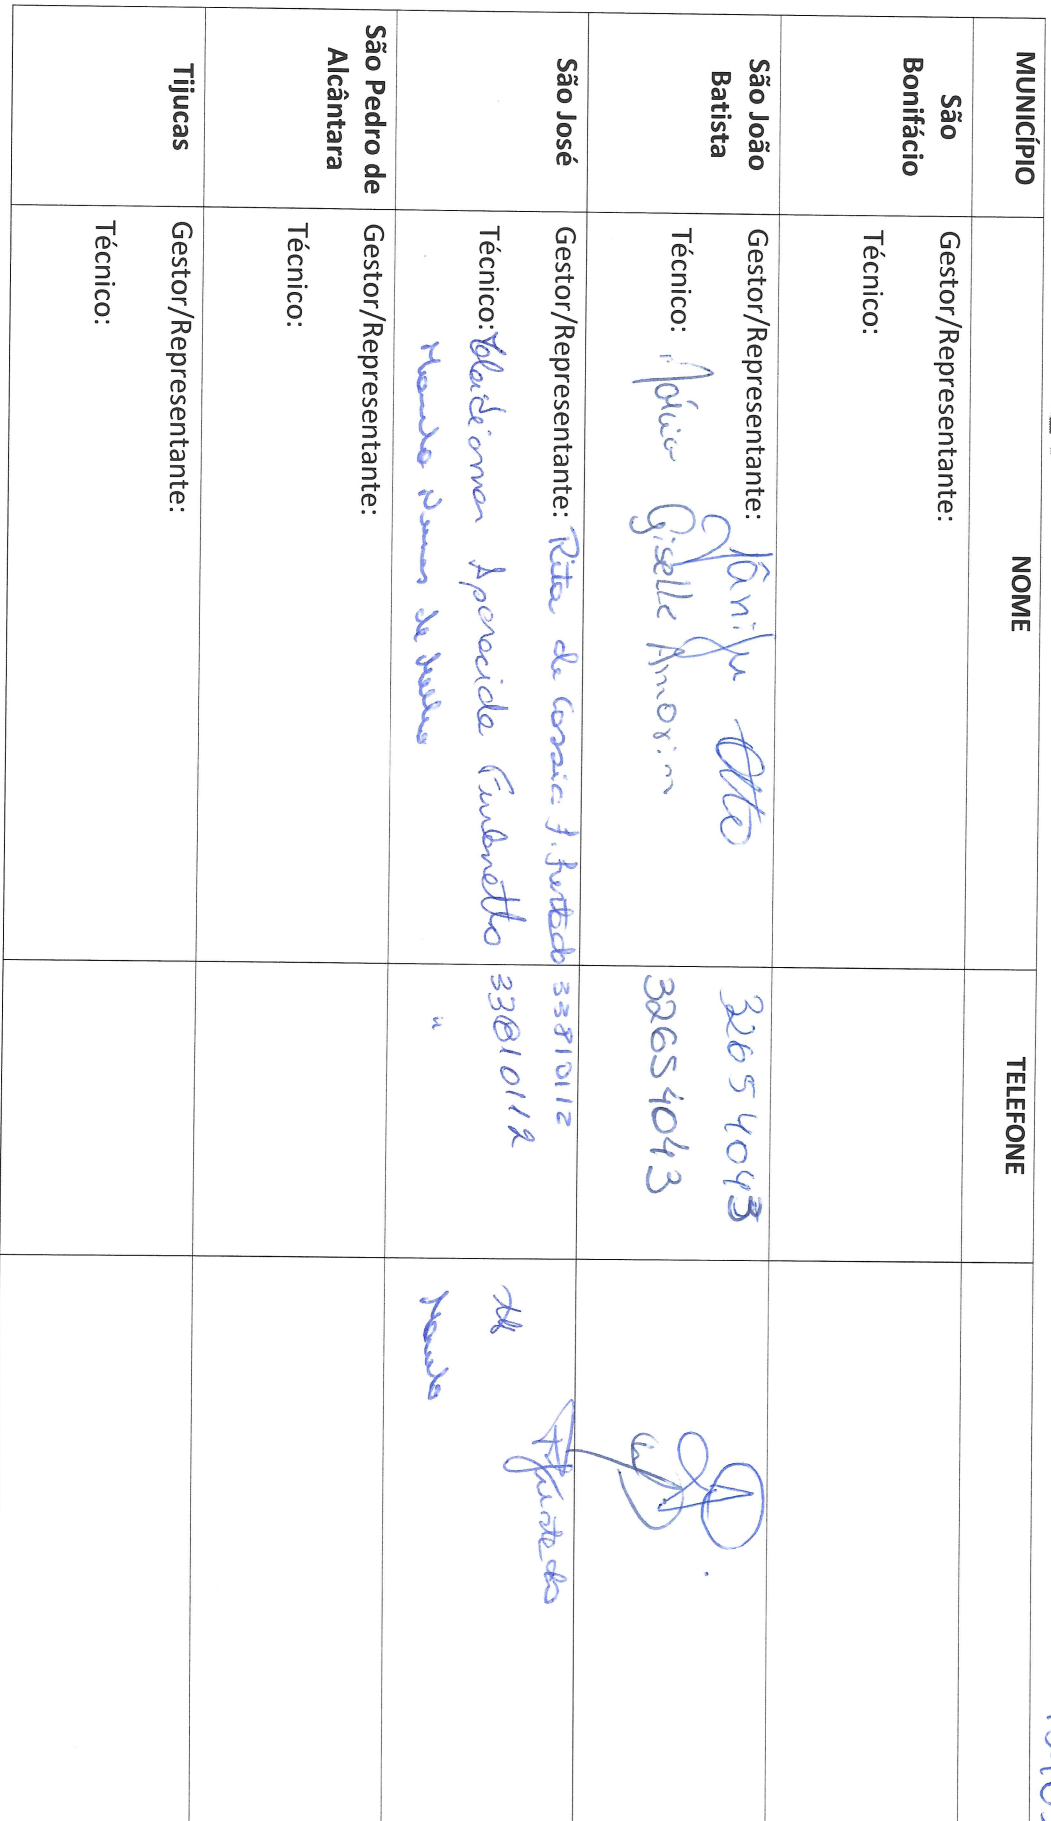 MUNICÍPIO NOME TELEFONE
São Bonifácio
Gestor/Representante:
Técnico:
São João Batista
Gestor/Representante: Otto 32654043
Técnico: Márcia Giselle Amorim 32654043
São José
Gestor/Representante: Rita de Cassia F. Furtado 33810112
Técnico: Aparecida 33810112
de "
São Pedro de Alcântara
Gestor/Representante:
Técnico:
Tijucas
Gestor/Representante:
Técnico: